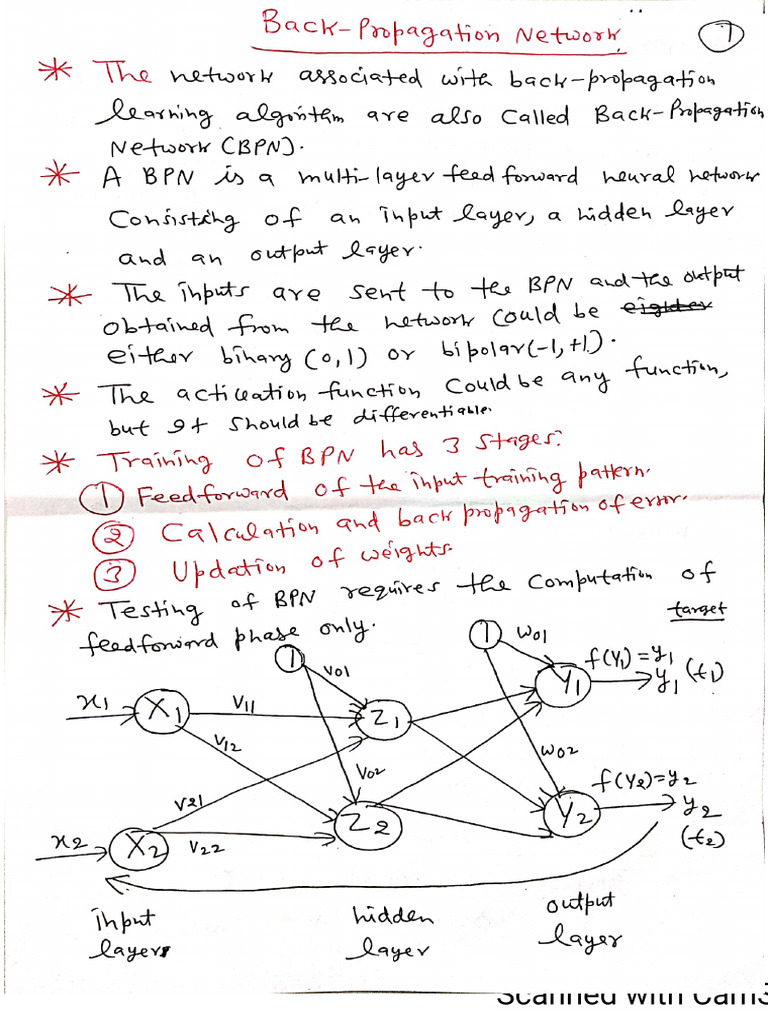 Back-Propagation Network
1
* The network associated with back-propagation
learning algorithm are also called Back-Propagation
Network (BPN).
* A BPN is a multi-layer feed forward neural network
Consisting of an input layer, a hidden layer
and an output layer.
* The inputs are sent to the BPN and the output
obtained from the network could be eighter
either binary (0,1) or bipolar(-1,+1).
* The activation function could be any function,
but It should be differentiable.
* Training of BPN has 3 stages:
① Feedforward of the input training pattern.
② Calculation and back propagation of error.
③ Updation of weights.
* Testing of BPN requires the computation of
feedforward phase only.
target
1
v01
1
w01
f(Y1) = y1
x1
X1
v11
Z1
Y1
y1 (t1)
v12
v02
w02
v21
f(Y2)=y2
x2
X2
v22
Z2
Y2
y2
(t2)
input
layer
hidden
layer
output
layer
Scanned with CamS